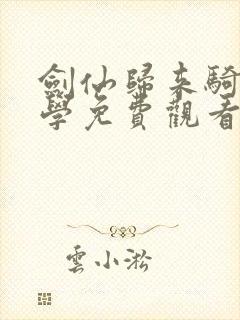 劍仙歸來騎
學免費觀看
雲小淞